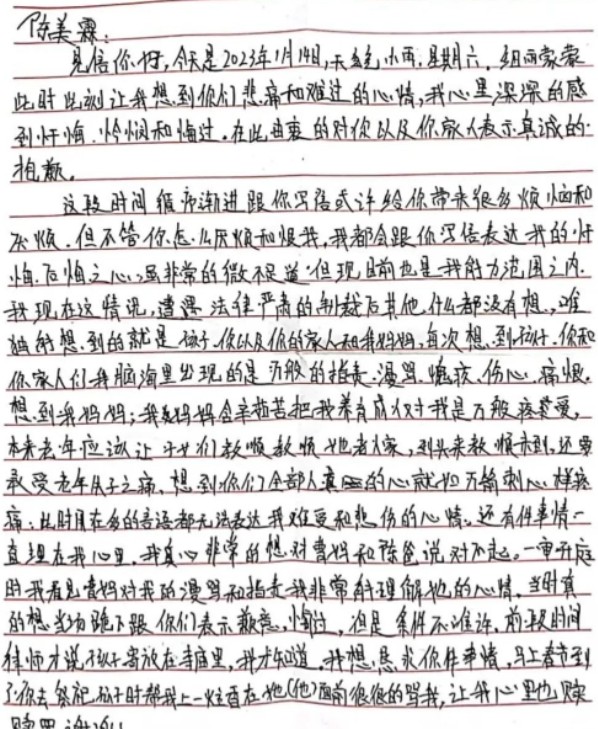 陈美霖:
见信你好,今天是2023年1月14日,天气小雨,星期六,细雨蒙蒙
此时此刻让我想到你们悲痛和难过的心情,我心里深深的感
到忏悔、怜悯和悔过。在此由衷的对你以及你家人表示真诚的
抱歉。
这段时间循序渐进跟你写信或许给你带来很多烦恼和
厌烦,但不管你怎么厌烦和恨我,我都会跟你写信表达我的忏
悔、后悔之心,虽非常的微不足道,但现目前也是我能力范围之内,
我现在这情况,遭遇法律严肃的制裁后其他什么都没有想,唯
独能想到的就是孩子、你以及你的家人和我妈妈,每次想到孩子、你和
你家人们我脑海里出现的是万般的指责、漫骂、愧疚、伤心、痛恨。
想到我妈妈;我妈妈含辛茹苦把我养育成人对我是万般疼爱,
本来老年应该让子女们孝顺孝顺她老人家,到头来孝顺未到,还要
承受老年丧子之痛,想到你们全部人的心就如万箭刺心一样疼
痛;此时用在多的言语都无法表达我难受和悲伤的心情,还有件事情一
直埋在我心里,我真心非常的想对曹妈和陈爸说对不起,一审开庭
时我看见曹妈对我的漫骂和指责我非常能理解她的心情,当时真
的想当场跪下跟你们表示歉意、悔过,但是条件不准许,前段时间
律师才说孩子寄放在寺庙里,我才知道,我想恳求你件事情,马上春节到
了你去祭祀孩子时帮我上一炷香在她(他)面前狠狠的骂我,让我心里也赎
赎罪,谢谢!